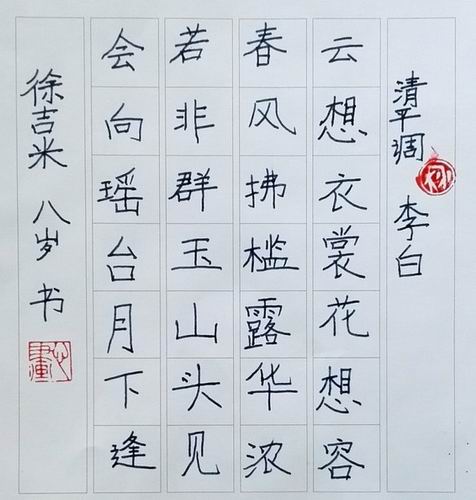 清平调 李白
云想衣裳花想容
春风拂槛露华浓
若非群玉山头见
会向瑶台月下逢
徐吉米 八岁 书